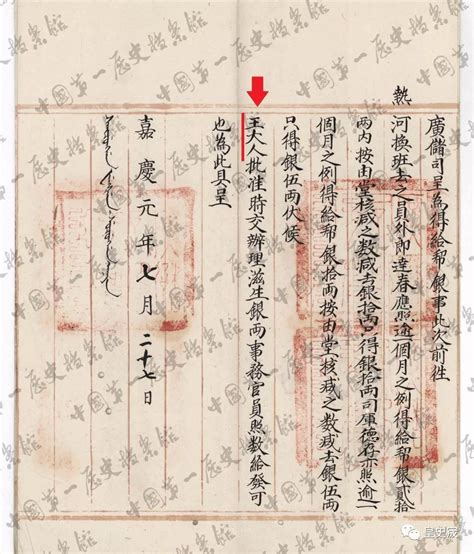 廣儲司呈為得給帮銀事此次前徃
熱河換班去之員外郎達春應照逾一個月之例得給帮銀貳拾
兩內按由堂核减之数减去銀拾兩只得銀拾兩司庫德存亦照逾一
個月之例得給帮銀拾兩按由堂核减之数减去銀伍兩
只得銀伍兩伏候
王大人批准時交辦理滋生銀兩事務官員照数給發可
也為此具呈
嘉慶元年七月二十七日
中國第一歷史檔案館
皇史宬